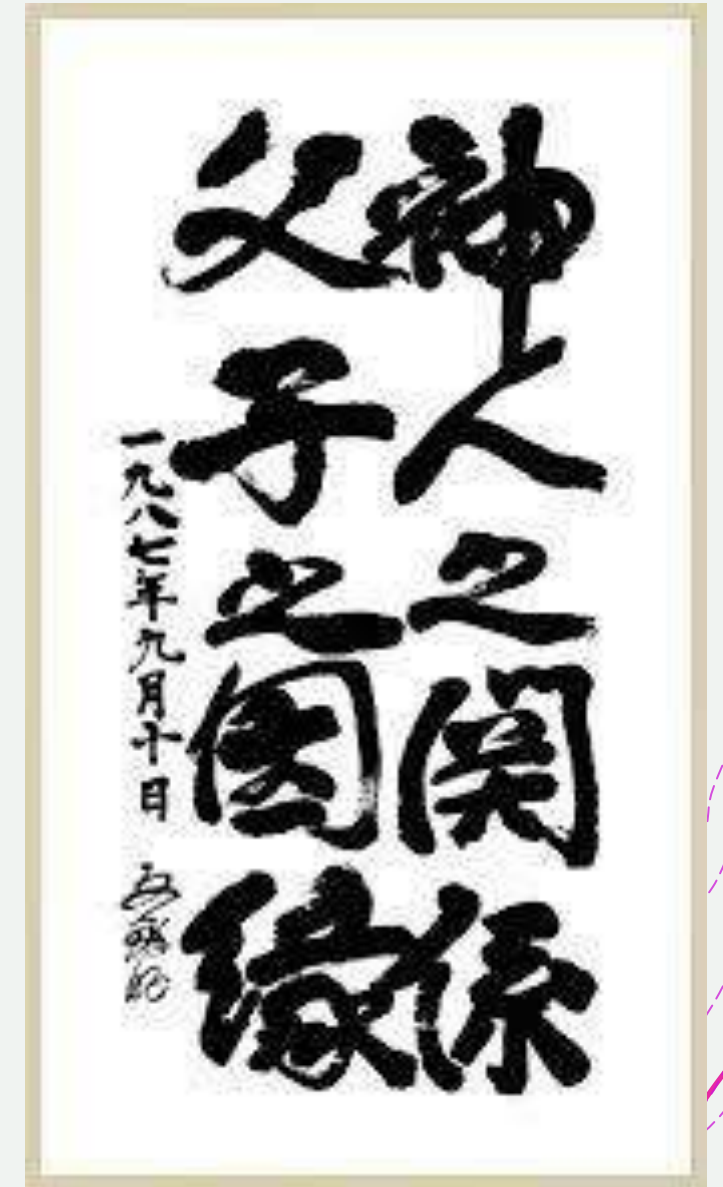 神人之関係
父子之因縁
一九八七年九月十日